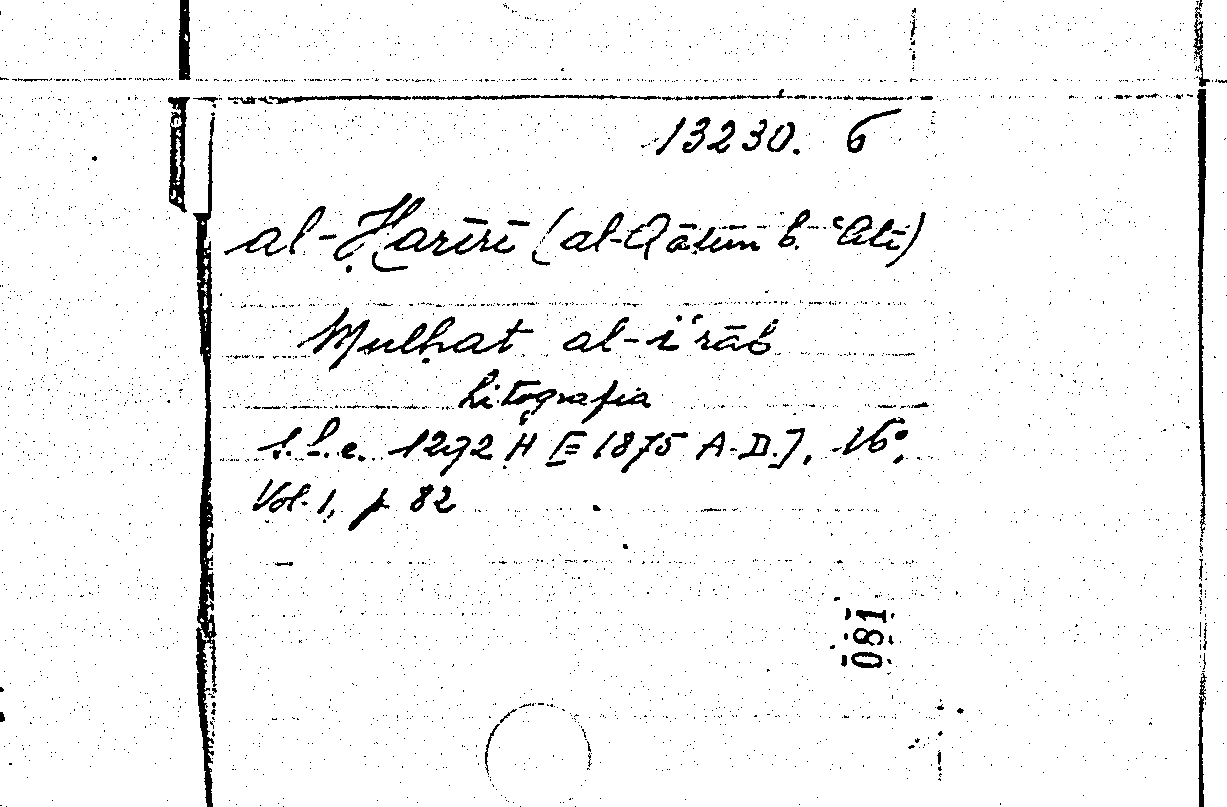 13230. 6
al-Ḥarīrī (al-Qāsim b. ʿAlī)
Mulḥat al-iʿrāb
Litografia
s.l.e. 1292 H [= 1875 A.D.], 16°,
Vol. 1, p. 82
081